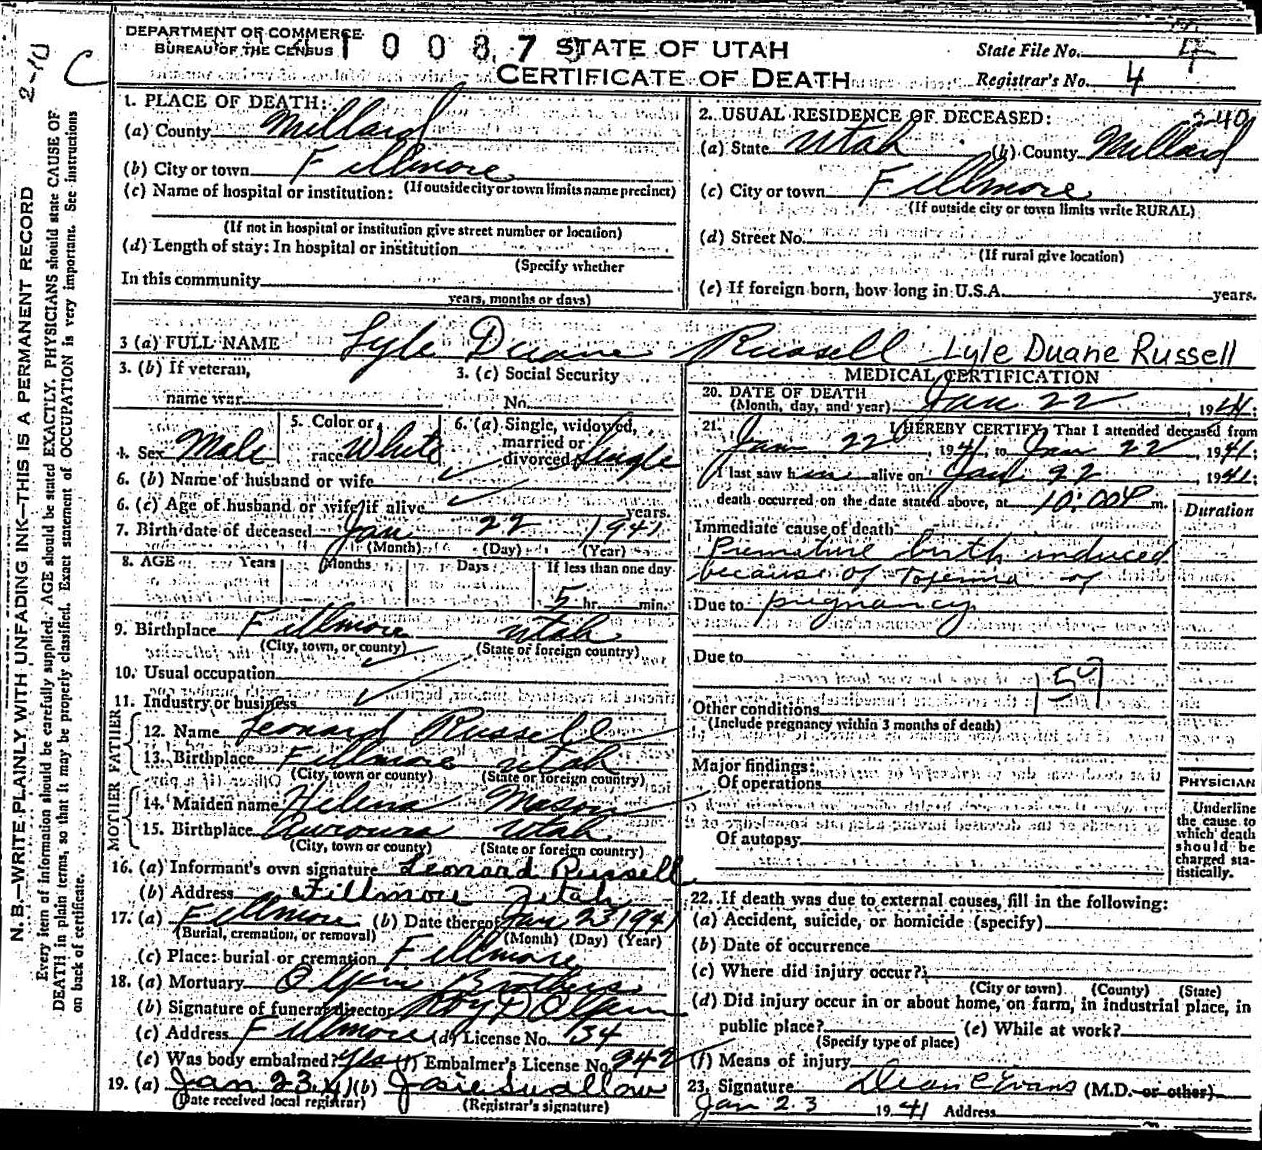 DEPARTMENT OF COMMERCE
BUREAU OF THE CENSUS
STATE OF UTAH
CERTIFICATE OF DEATH
State File No. 4
Registrar's No. 4
2-10 C
N. B.—WRITE PLAINLY WITH UNFADING INK—THIS IS A PERMANENT RECORD
Every item of information should be carefully supplied. AGE should be stated EXACTLY. PHYSICIANS should state CAUSE OF
DEATH in plain terms, so that it may be properly classified. Exact statement of OCCUPATION is very important. See instructions
on back of certificate.
1. PLACE OF DEATH:
(a) County Millard
(b) City or town Fillmore
(If outside city or town limits name precinct)
(c) Name of hospital or institution:
(If not in hospital or institution give street number or location)
(d) Length of stay: In hospital or institution
(Specify whether
In this community
years, months or days)
2. USUAL RESIDENCE OF DECEASED:
(a) State Utah (b) County Millard
(c) City or town Fillmore
(If outside city or town limits write RURAL)
(d) Street No.
(If rural give location)
(e) If foreign born, how long in U.S.A. years.
3 (a) FULL NAME Lyle Duane Russell Lyle Duane Russell
3. (b) If veteran,
name war
3. (c) Social Security
No.
4. Sex Male
5. Color or
race White
6. (a) Single, widowed,
married or
divorced Single
6. (b) Name of husband or wife
6. (c) Age of husband or wife if alive years.
7. Birth date of deceased Jan 22 1941
(Month) (Day) (Year)
8. AGE Years Months Days If less than one day
5 hr. min.
9. Birthplace Fillmore Utah
(City, town, or county) (State or foreign country)
10. Usual occupation
11. Industry or business
FATHER
12. Name Leonard Russell
13. Birthplace Fillmore Utah
(City, town or county) (State or foreign country)
MOTHER
14. Maiden name Helena Mason
15. Birthplace Auroura Utah
(City, town or county) (State or foreign country)
16. (a) Informant's own signature Leonard Russell
(b) Address Fillmore Utah
17. (a) Fillmore (b) Date thereof Jan 23 1941
(Burial, cremation, or removal) (Month) (Day) (Year)
(c) Place: burial or cremation Fillmore
18. (a) Mortuary Olpin Brothers
(b) Signature of funeral director Roy D Olpin
(c) Address Fillmore (d) License No. 134
(e) Was body embalmed? Yes (f) Embalmer's License No. 242
19. (a) Jan 23 41 (b) Josie Swallow
(Date received local registrar) (Registrar's signature)
MEDICAL CERTIFICATION
20. DATE OF DEATH
(Month, day, and year) Jan 22, 1941;
21. I HEREBY CERTIFY, That I attended deceased from
Jan 22, 1941, to Jan 22, 1941;
I last saw him alive on Jan 22 1941;
death occurred on the date stated above, at 10:00 P m.
Duration
Immediate cause of death
Premature birth induced
because of Toxemia of
Due to pregnancy
Due to
159
Other conditions
(Include pregnancy within 3 months of death)
Major findings:
Of operations
Of autopsy
PHYSICIAN
Underline
the cause to
which death
should be
charged sta-
tistically.
22. If death was due to external causes, fill in the following:
(a) Accident, suicide, or homicide (specify)
(b) Date of occurrence
(c) Where did injury occur?
(City or town) (County) (State)
(d) Did injury occur in or about home, on farm, in industrial place, in
public place? (e) While at work?
(Specify type of place)
(f) Means of injury
23. Signature Dean C Evans (M.D. or other)
Jan 23 1941 Address